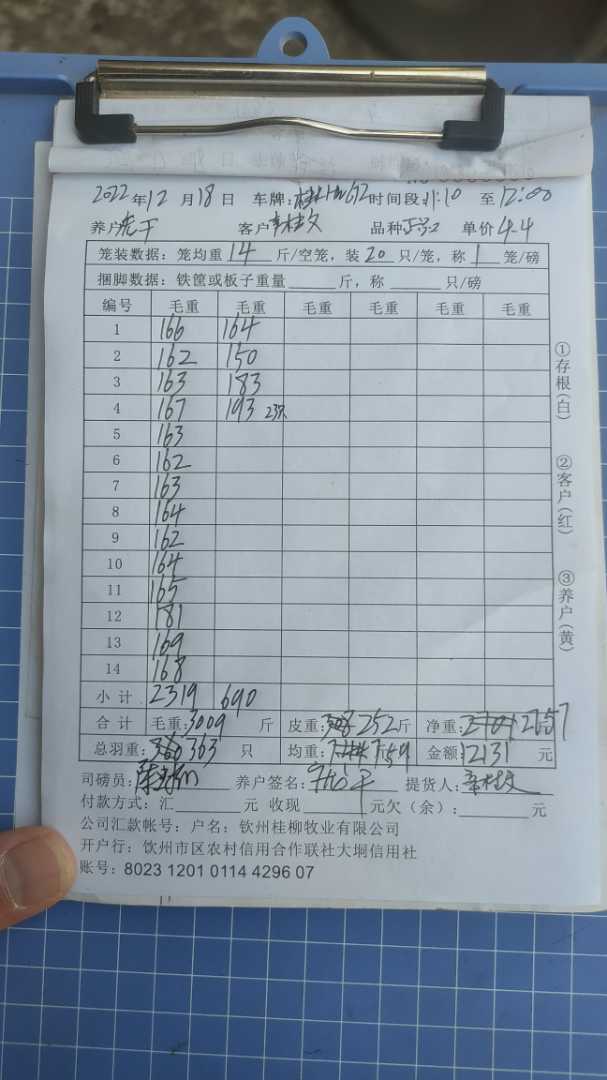 2022年12月18日 车牌: 时间段11:10至12:00
养户 客户 品种 单价4.4
笼装数据：笼均重14斤/空笼，装20只/笼，称1笼/磅
捆脚数据：铁筐或板子重量____斤，称____只/磅
编号 毛重 毛重 毛重 毛重 毛重 毛重
1 166 164
2 162 150
3 163 183
4 167 193 23只
5 163
6 162
7 163
8 164
9 162
10 164
11 165
12 181
13 169
14 168
小计 2319 690
合计 毛重:3009斤 皮重:252斤 净重:2757元
总羽重:363只 均重:7.59 金额:12131元
司磅员: 养户签名: 提货人:
付款方式：汇____元 收现____元欠（余）:____元
公司汇款帐号：户名：钦州桂柳牧业有限公司
开户行：钦州市区农村信用合作联社大垌信用社
账号：8023 1201 0114 4296 07
①存根(白)
②客户(红)
③养户(黄)